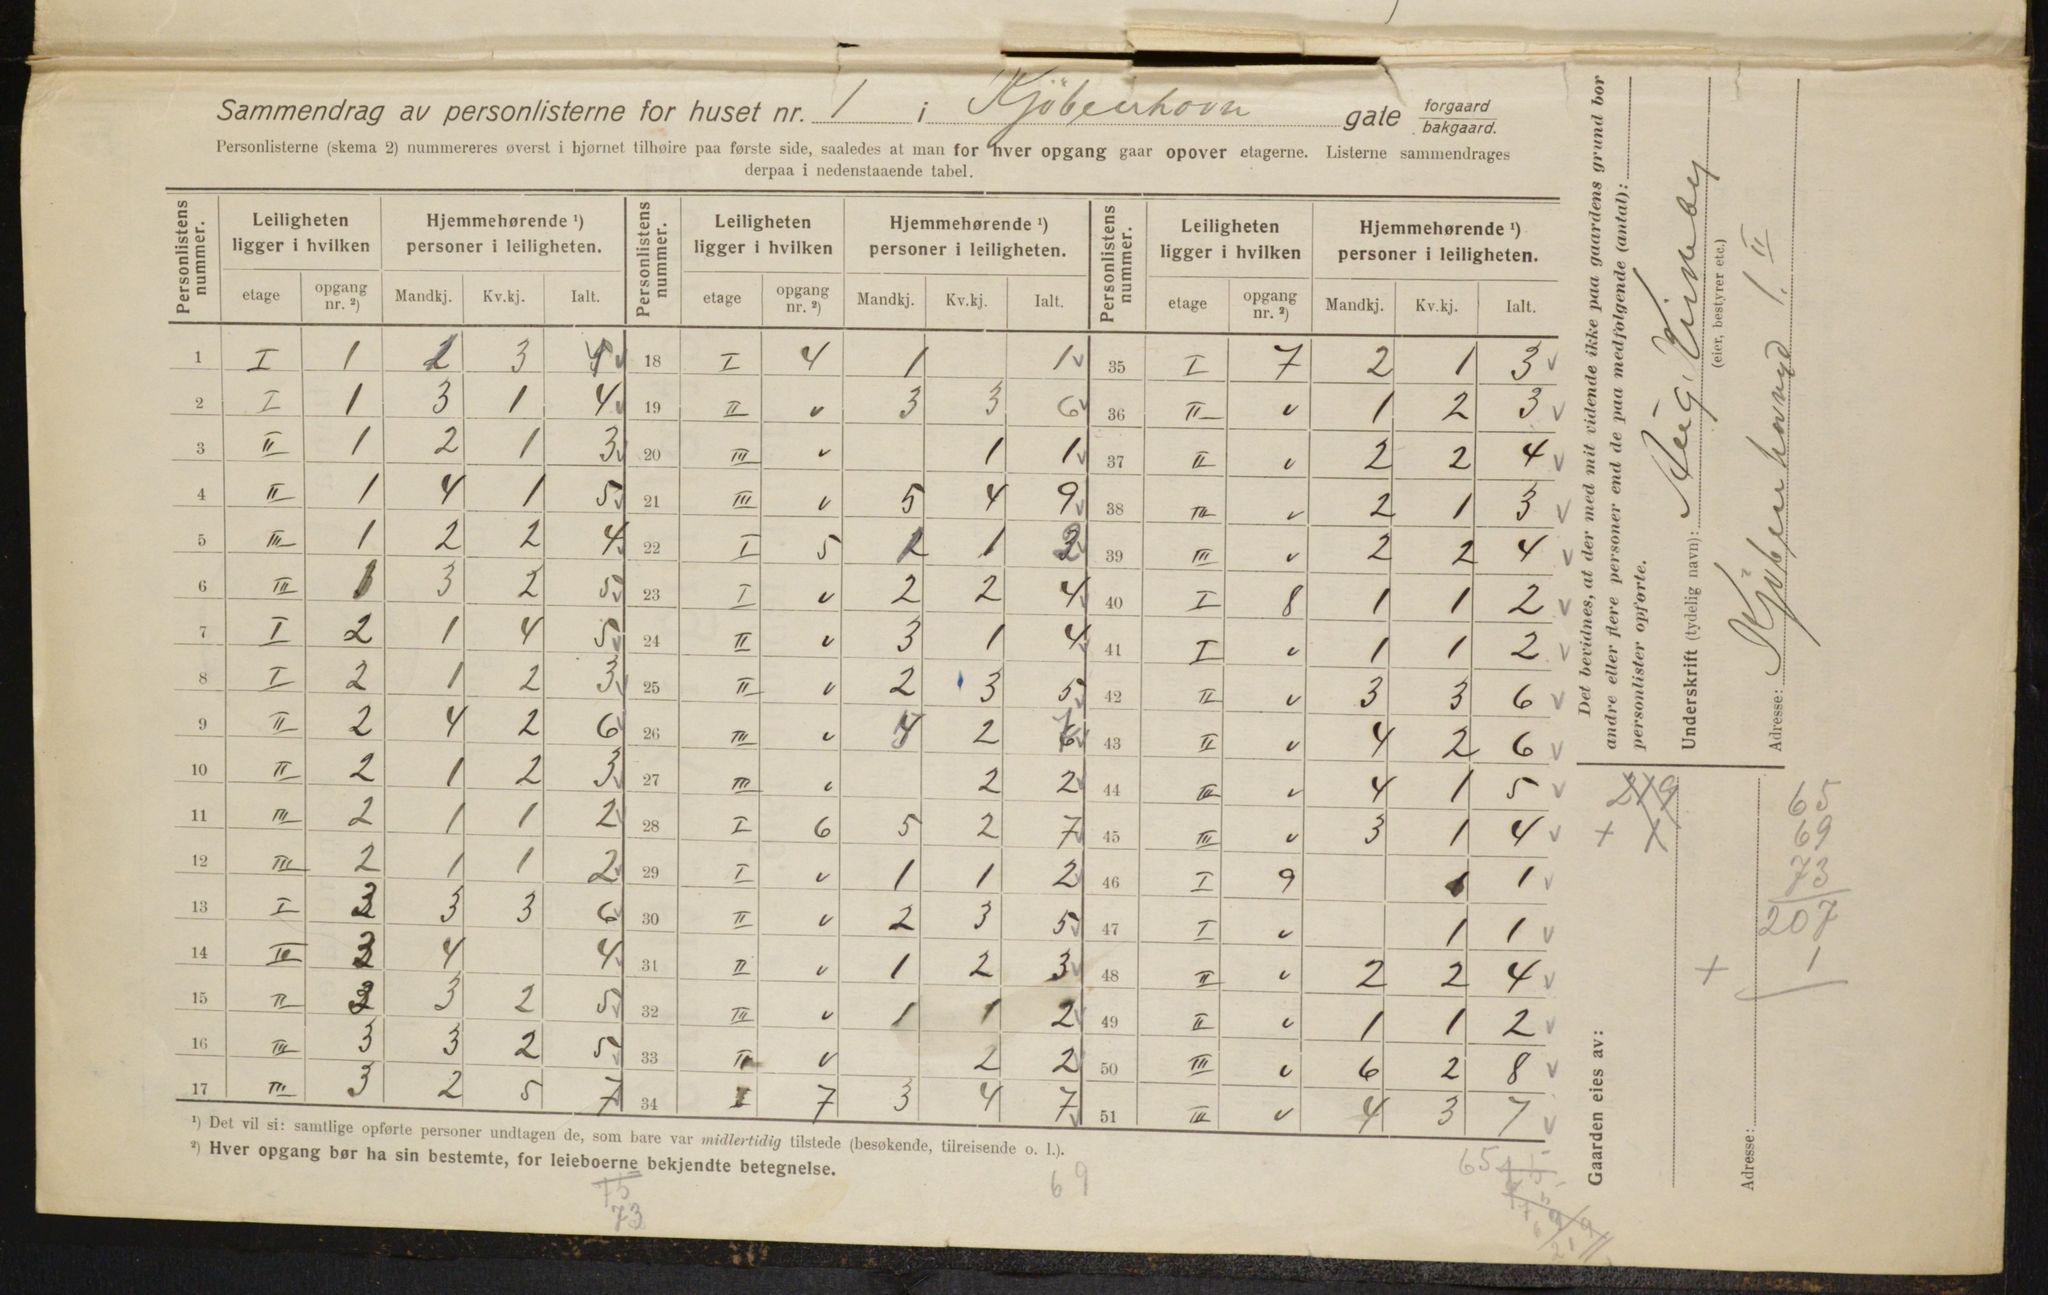 Sammendrag av personlisterne for huset nr. 1 i Kjöbenhavn gate forgaard bakgaard.
Personlisterne (skema 2) nummereres øverst i hjørnet tilhøire paa første side, saaledes at man for hver opgang gaar opover etagerne. Listerne sammendrages
derpaa i nedenstaaende tabel.
Personlistens nummer. Leiligheten ligger i hvilken Hjemmehørende ¹) personer i leiligheten. Personlistens nummer. Leiligheten ligger i hvilken Hjemmehørende ¹) personer i leiligheten. Personlistens nummer. Leiligheten ligger i hvilken Hjemmehørende ¹) personer i leiligheten.
etage opgang nr. ²) Mandkj. Kv.kj. Ialt. etage opgang nr. ²) Mandkj. Kv.kj. Ialt. etage opgang nr. ²) Mandkj. Kv.kj. Ialt.
1 I 1 3 18 I 4 1 1 35 I 7 2 1 3
2 I 1 3 1 4 19 II v 3 3 6 36 II v 1 2 3
3 II 1 2 1 3 20 III v 1 1 37 II v 2 2 4
4 II 1 4 1 5 21 III v 5 4 9 38 III v 2 1 3
5 III 1 2 2 4 22 I 5 1 39 III v 2 2 4
6 III 1 3 2 5 23 I v 2 2 4 40 I 8 1 1 2
7 I 2 1 4 5 24 II v 3 1 4 41 I v 1 1 2
8 I 2 1 2 3 25 II v 2 3 5 42 II v 3 3 6
9 II 2 4 2 6 26 III v 2 43 II v 4 2 6
10 II 2 1 2 3 27 III v 2 2 44 III v 4 1 5
11 III 2 1 1 2 28 I 6 5 2 7 45 III v 3 1 4
12 III 2 1 1 2 29 I v 1 1 2 46 I 9 1 1
13 I 3 3 3 6 30 II v 2 3 5 47 I v 1 1
14 II 3 4 4 31 II v 1 2 3 48 II v 2 2 4
15 II 3 3 2 5 32 III v 1 1 2 49 II v 1 1 2
16 III 3 3 2 5 33 III v 2 2 50 III v 6 2 8
17 III 3 2 5 7 34 I 7 3 4 7 51 III v 4 3 7
¹) Det vil si: samtlige opførte personer undtagen de, som bare var midlertidig tilstede (besøkende, tilreisende o. l.).
²) Hver opgang bør ha sin bestemte, for leieboerne bekjendte betegnelse.
75
73
69
65
Det bevidnes, at der med mit vidende ikke paa gaardens grund bor
andre eller flere personer end de paa medfølgende (antal):
personlister opførte.
Underskrift (tydelig navn): Aug. Kirkeby
(eier, bestyrer etc.)
Adresse: Kjöbenhavngd 1. II
Gaarden eies av:
Adresse:
279
+
65
69
73
207
+ 1